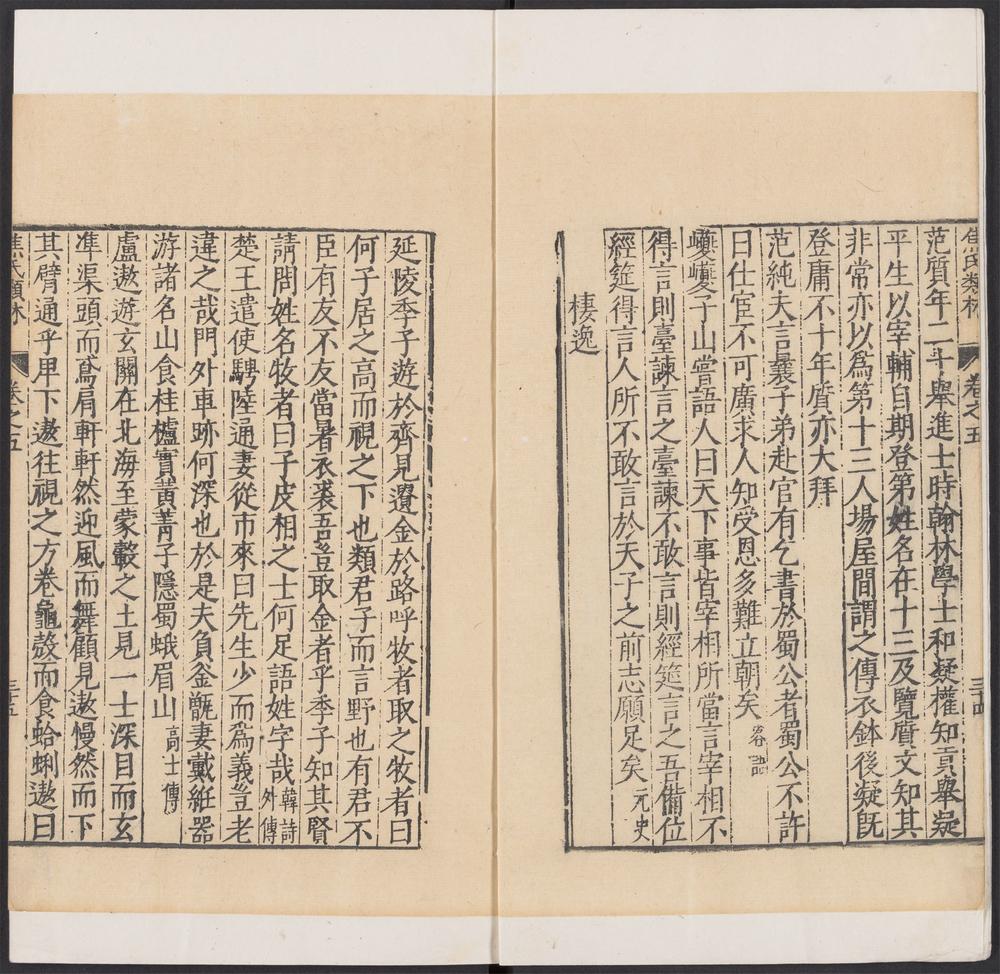 焦氏類林 卷之五 三十四
范質年二十舉進士時翰林學士和凝權知貢舉凝
平生以宰輔自期登第姓名在十三及覽質文知其
非常亦以爲第十三人場屋間謂之傳衣鉢後凝旣
登庸不十年質亦大拜
范純夫言曩子弟赴官有乞書於蜀公者蜀公不許
曰仕宦不可廣求人知受恩多難立朝矣
巙巙子山嘗語人曰天下事皆宰相所當言宰相不
得言則臺諫言之臺諫不敢言則經筵言之吾備位
經筵得言人所不敢言於天子之前志願足矣元史
棲逸
延陵季子遊於齊見遺金於路呼牧者取之牧者曰
何子居之高而視之下也類君子而言野也有君不
臣有友不友當暑衣裘吾豈取金者乎季子知其賢
請問姓名牧者曰子皮相之士何足語姓字哉韓詩外傳
楚王遣使騁陸通妻從市來曰先生少而爲義豈老
違之哉門外車跡何深也於是夫負釜甑妻戴紝器
游諸名山食桂櫨實黃菁子隱蜀蛾眉山高士傳
盧遨遊玄關在北海至蒙轂之土見一士深目而玄
準渠頭而鳶肩軒軒然迎風而舞顧見遨慢然而下
其臂通乎甲下遨往視之方卷龜殼而食蛤蜊遨曰
焦氏類林 卷之五 三十五